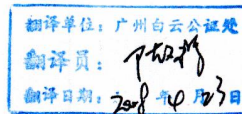 翻译单位：广州白云公证处
翻译员：
翻译日期：2008年4月23日